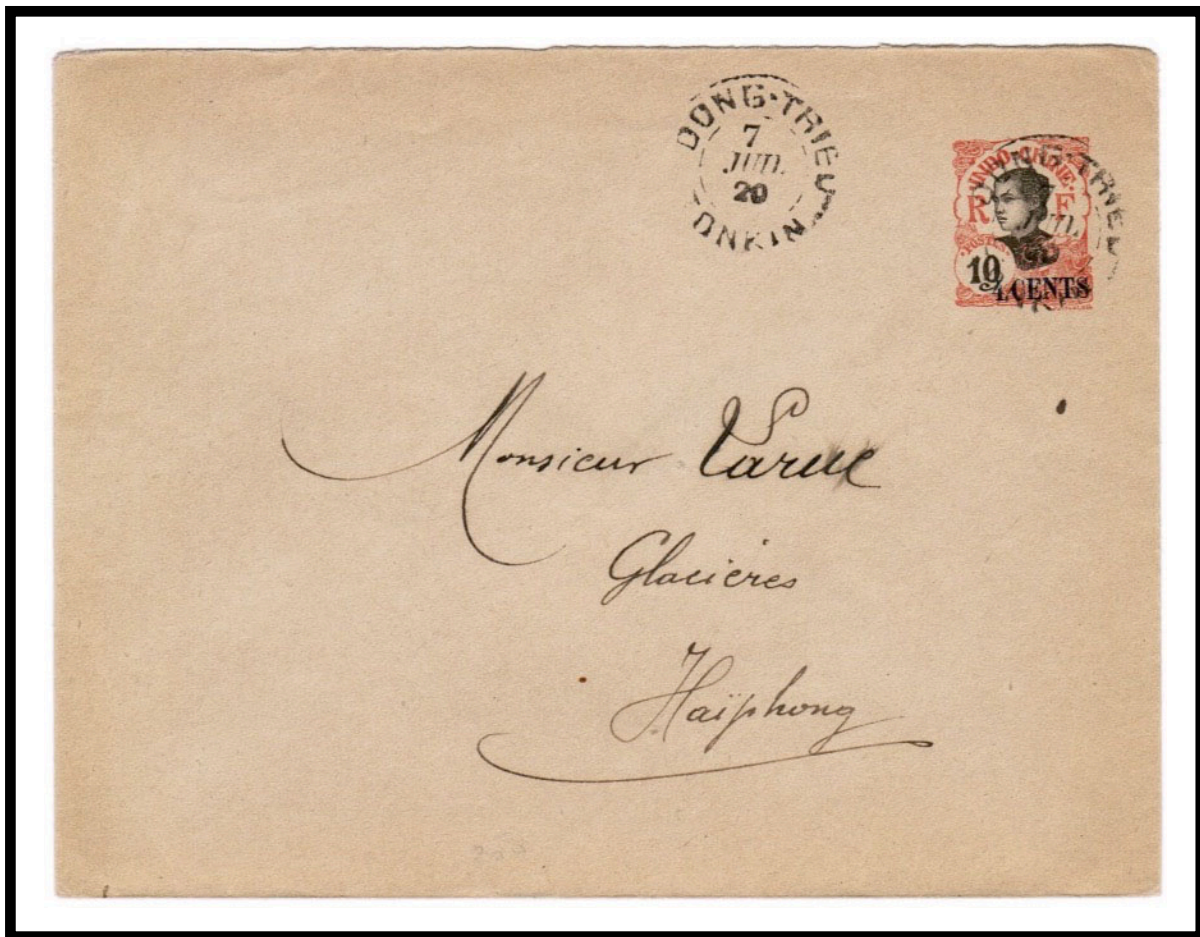 DONG-TRIEU
7
JUIL
20
TONKIN
INDO-CHINE
R F
POSTES
10
4 CENTS
DONG-TRIEU
JUIL
Monsieur Larue
Glacières
Haïphong